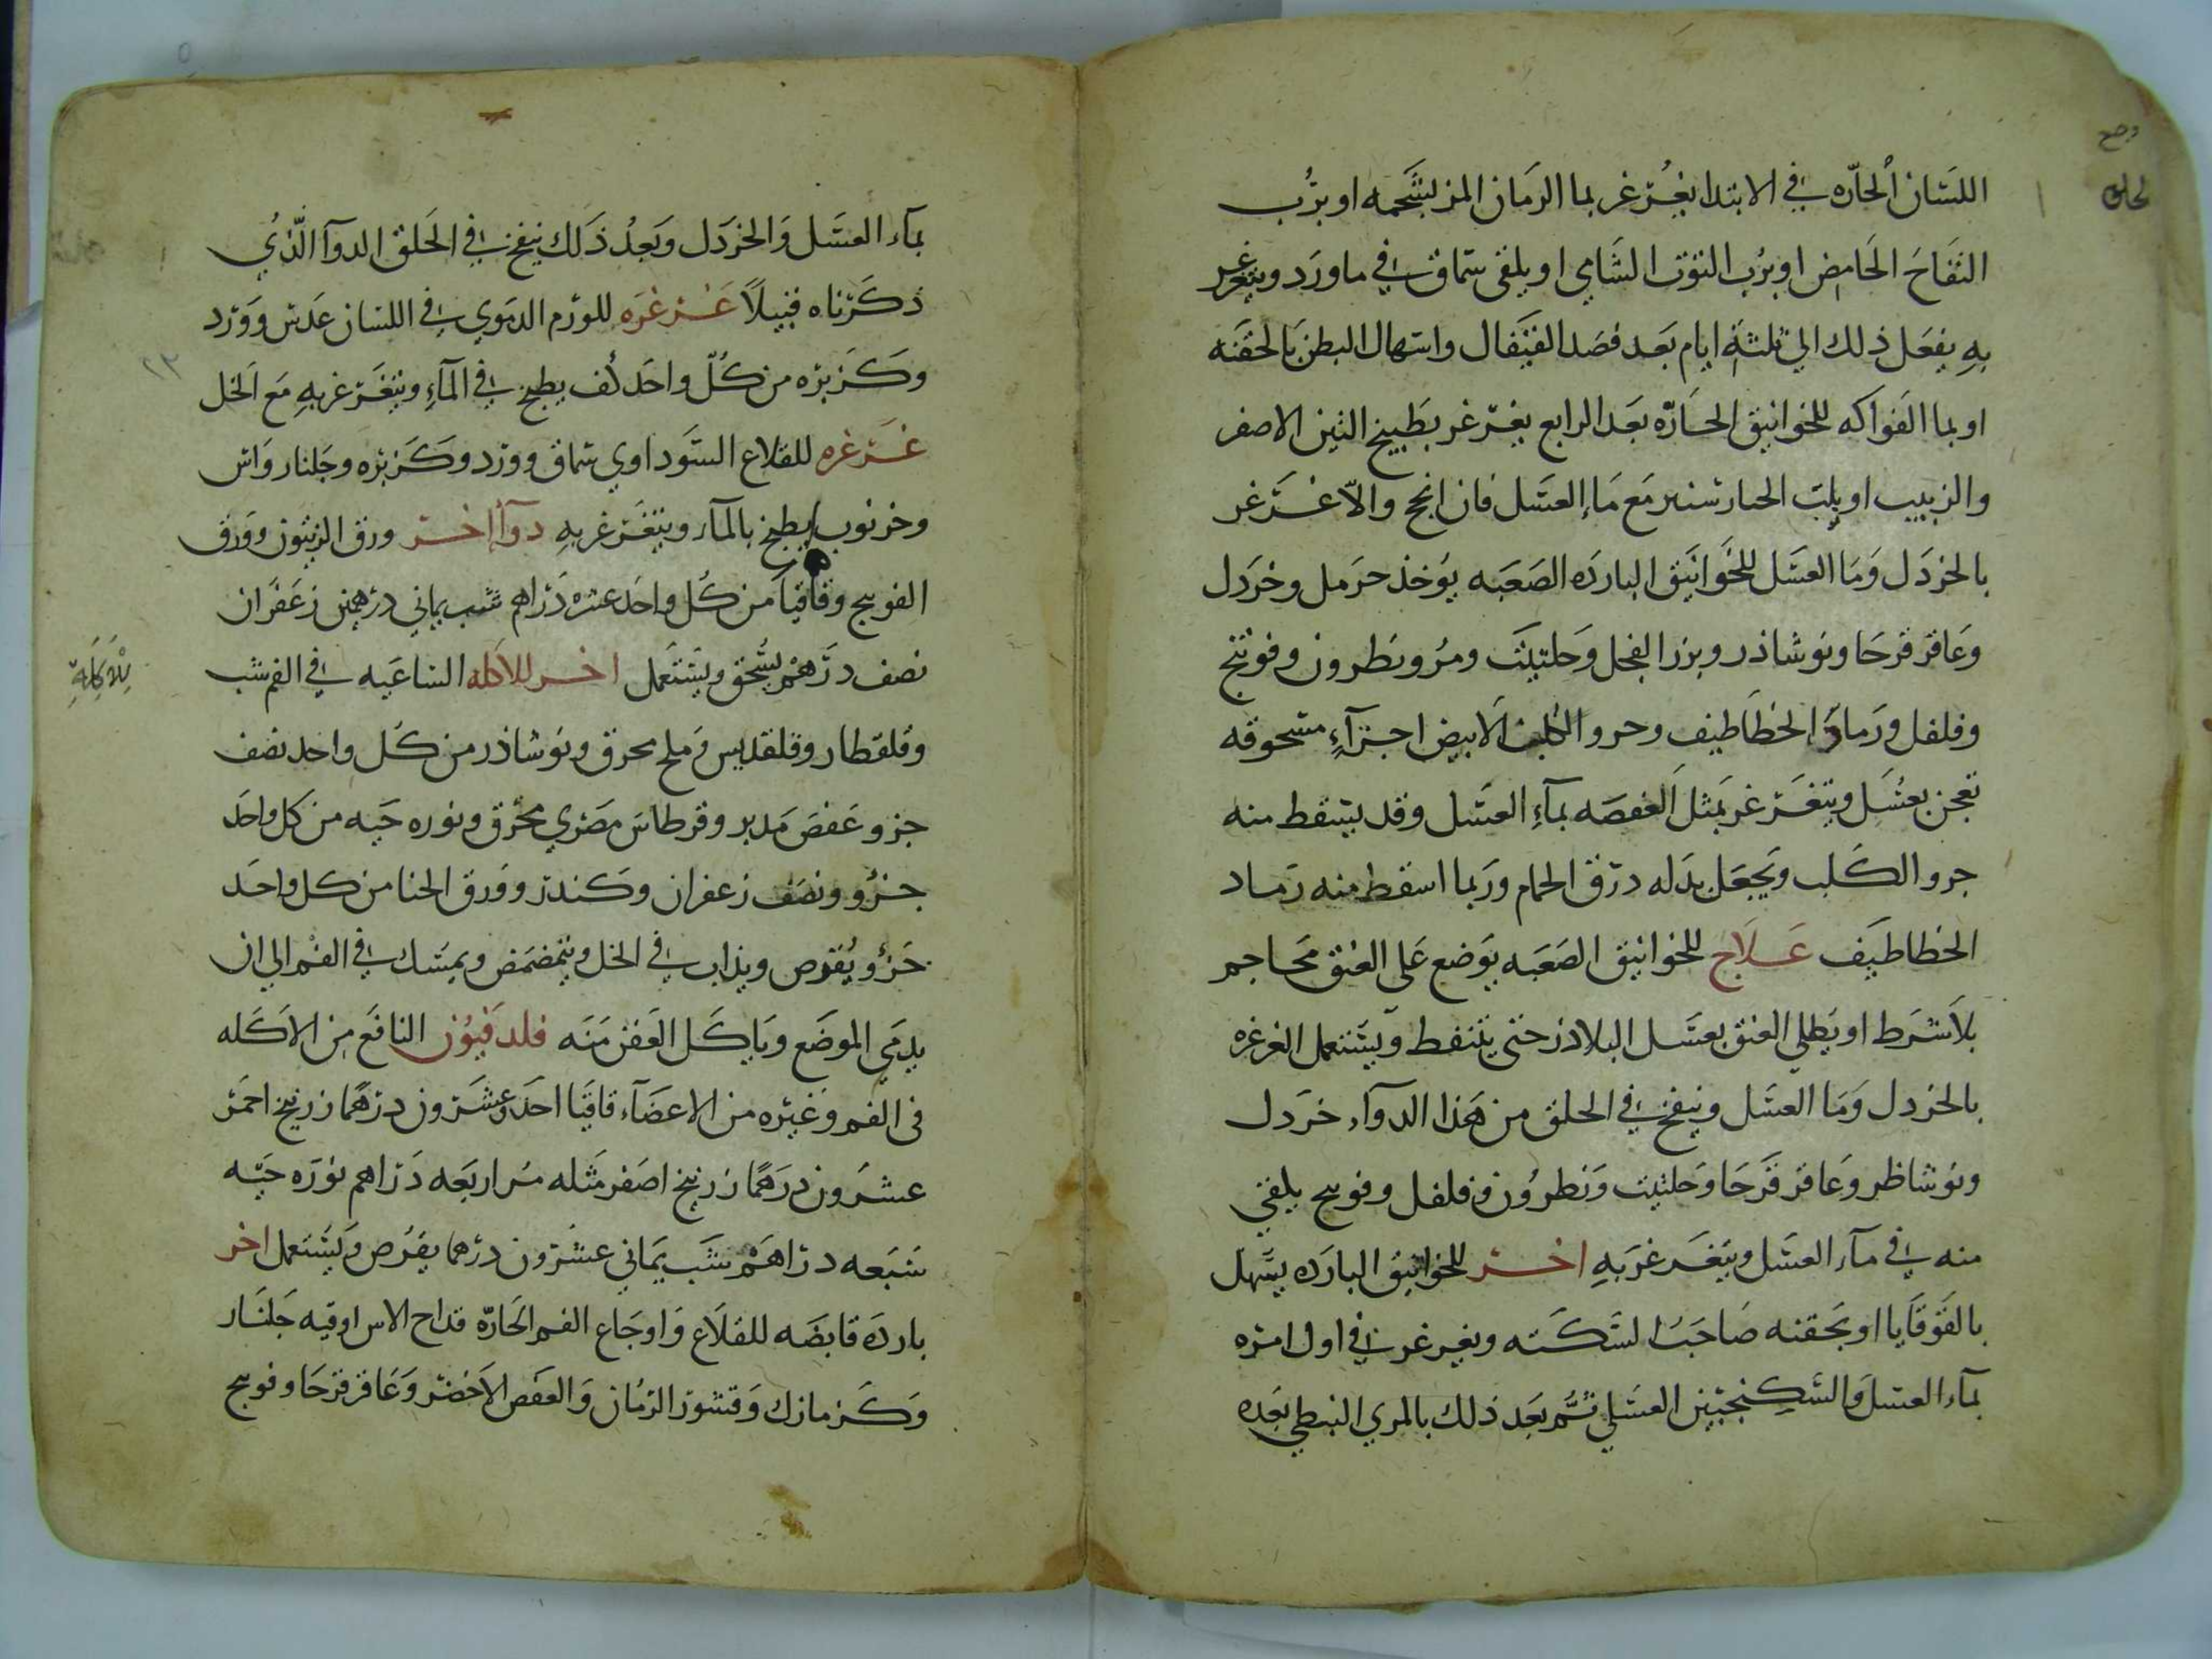 اللسان الحاره في الابتدا يغرغر بما الرمان المز بشحمه او برب
التفاح الحامض او برب التوت الشامي او يلقى سماق في ماورد ويتغرغر
به يفعل ذلك الي ثلثة ايام بعد فصد القيفال واسهال البطن بالحقنه
او بما الفواكه للخوانيق الحاره بعد الرابع يغرغر بطبيخ التين الاصفر
والزبيب او بلب الخيارشنبر مع ماء العسل فان انجح والا غرغر
بالخردل وما العسل للخوانيق البارده الصعبه يوخذ حرمل وخردل
وعاقرقرحا ونوشاذر وبزر الفجل وحلتيت ومر ونطرون وفوتنج
وفلفل ورماد الخطاطيف وخرو الكلب الابيض اجزآء مسحوقه
تعجن بعسل ويتغرغر بمثل العفصه بمآء العسل وقد يسقط منه
خرو الكلب ويجعل بدله درق الحمام وربما اسقط منه رماد
الخطاطيف علاج للخوانيق الصعبه يوضع على العنق محاجم
بلا شرط او يطلي العنق بعسل البلاذر حتى يتنفط ويستعمل الغرغره
بالخردل وما العسل وينفخ في الحلق من هذا الدوآء خردل
ونوشاظر وعاقرقرحا وحلتيت ونطرون وفلفل وفوتنج يلقى
منه في مآء العسل ويتغرغر به اخر للخوانيق البارده يسهل
بالقوقايا او بحقنه صاحب السكته ويغرغر في اول امره
بمآء العسل والسكنجبين العسلي ثم بعد ذلك بالمري النبطي بعده
لحلق
بمآء العسل والخردل وبعد ذلك ينفخ في الحلق الدوآ الذي
ذكرناه قبيلا غرغره للورم الدموي في اللسان عدس وورد
وكزبره من كل واحد كف يطبخ في المآء ويتغرغر به مع الخل
غرغره للقلاع السوداوي سماق وورد وكزبره وجلنار واس
وخرنوب يطبخ بالمآء ويتغرغر به دوآ اخر ورق الزيتون وورق
الفوتنج وقاقيا من كل واحد عشره دراهم شب يماني درهمين زعفران
نصف درهم يسحق ويستعمل اخر للاكله الساعيه في الفم شب
وقلقطار وقلقديس وملح محرق ونوشاذر من كل واحد نصف
جزو عفص مدبر وقرطاس مصري محرق ونوره حيه من كل واحد
جزو ونصف زعفران وكندر وورق الحنا من كل واحد
جزو يقرص ويذاب في الخل ويتمضمض ويمسك في الفم الي ان
يدمي الموضع وياكل العفن منه فلدفيون النافع من الاكله
في الفم وغيره من الاعضآء قاقيا احد وعشرون درهما زرنيخ احمر
عشرون درهما زرنيخ اصفر مثله مر اربعه دراهم نوره حيه
سبعه دراهم شب يماني عشرون درهما يقرص ويستعمل اخر
بارده قابضه للقلاع واوجاع الفم الحاره قداح الاس اوقيه جلنار
وكزمازك وقشور الرمان والعفص الاخضر وعاقرقرحا وفوتنج
للاكلة
٢٣